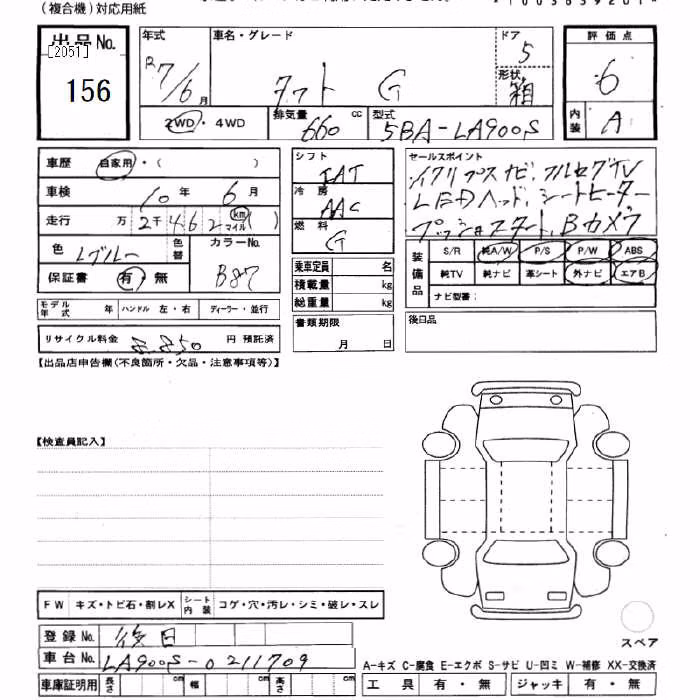 (複合機)対応用紙
出品No. 年式 車名・グレード ドア 評価点
[2051] R7/6月 タフト G 5 6
156 形状 箱
2WD・4WD 排気量 660 cc 型式 5BA-LA900S 内装 A
車歴 自家用・( ) シフト IAT セールスポイント
車検 10年 6月 冷房 AAC
走行 万2千462 km マイル ( ) 燃料 G LEDヘッド、シートヒーター
プッシュスタート、Bカメラ
色 Lブルー 色替 カラーNo. B87
保証書 有・無
乗車定員 名
積載量 kg
総重量 kg
装備品 S/R 純A/W P/S P/W ABS
純TV 純ナビ 革シート 外ナビ エアB
ナビ型番:
モデル年式 年 ハンドル 左・右 ディーラー・並行
書類期限 月 日
後日品
リサイクル料金 8,850 円 預託済
【出品店申告欄(不良箇所・欠品・注意事項等)】
【検査員記入】
FW キズ・トビ石・割レX シート内装 コゲ・穴・汚レ・シミ・破レ・スレ
登録No. 後日
車台No. LA900S-0211709
スペア
A-キズ C-腐食 E-エクボ S-サビ U-凹ミ W-補修 XX-交換済
車庫証明用 長さ cm 幅 cm 高さ cm 工具 有・無 ジャッキ 有・無